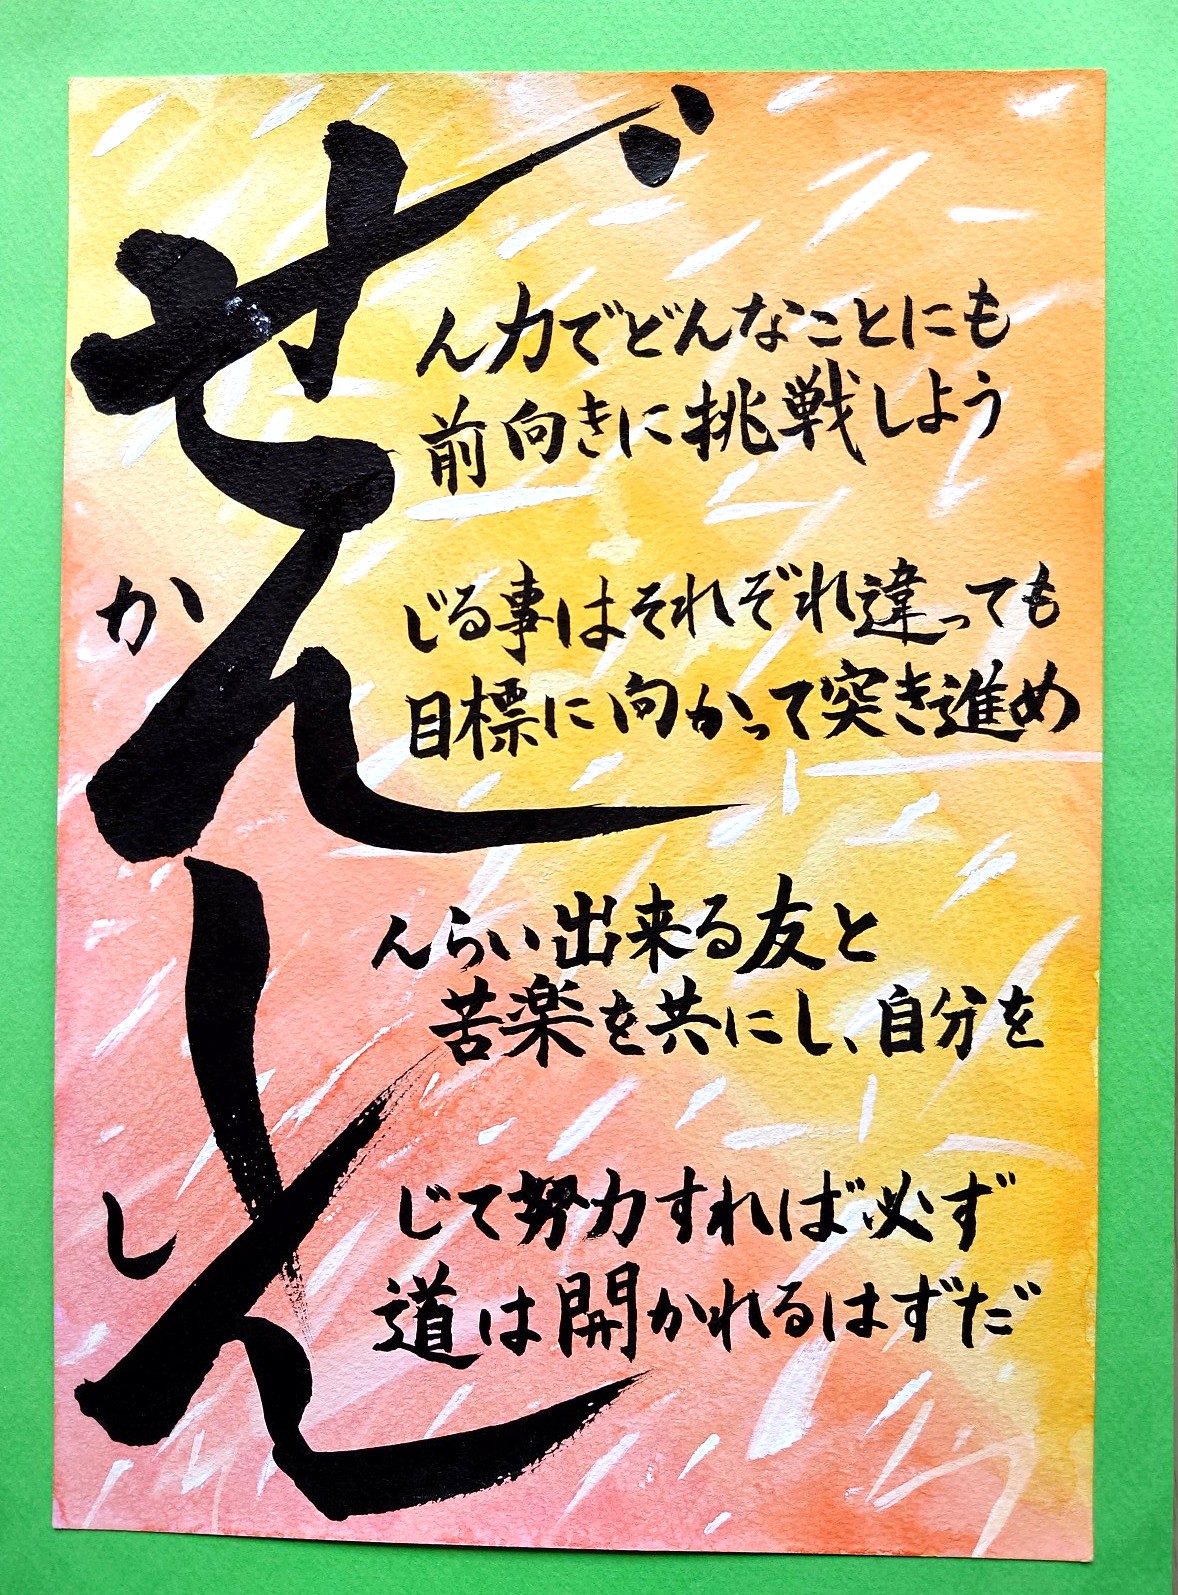 ぜんしん
ん力でどんなことにも
前向きに挑戦しよう
か
じる事はそれぞれ違っても
目標に向かって突き進め
んらい出来る友と
苦楽を共にし、自分を
し
じて努力すれば必ず
道は開かれるはずだ